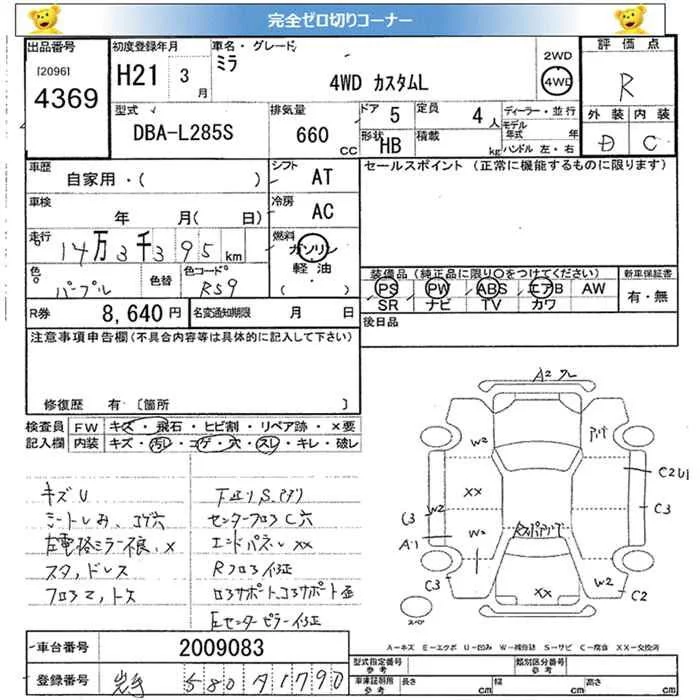 完全ゼロ切りコーナー
出品番号
[2096]
4369
初度登録年月
H21 3月
車名・グレード
ミラ
4WD カスタムL
2WD
4WD
評価点
R
外装 内装
D C
型式
DBA-L285S
排気量
660 CC
ドア 5
定員 4人
形状 HB
積載 kg
ディーラー・並行
モデル年式 年
ハンドル 左・右
車歴
自家用・( )
シフト AT
セールスポイント (正常に機能するものに限ります)
車検
年 月( 日)
冷房 AC
走行
14万3千395km
燃料 ガソリン
軽油
( ・ )
色
パープル
色替
色コード
R59
R券 8,640円
名変通知期限 月 日
装備品 (純正品に限り○をつけてください)
PS PW ABS エアB AW
SR ナビ TV カワ
新車保証書
有・無
後日品
注意事項申告欄(不具合内容等は具体的に記入して下さい)
修復歴 有 〔箇所 〕
検査員記入欄
FW キズ・飛石・ヒビ割・リペア跡・×要
内装 キズ・汚レ・コゲ・穴・スレ・キレ・破レ
キズU
シートしみ、コゲ穴
左電格ミラー不良、×
スタッドレス
下廻りS.アリ
センターフロアC穴
エンドパネルXX
Rフロア修正
左センターピラー修正
A2
W2
XX
W2
W2
C3
A1
C3
C2U1
C3
W2
C2
XX
スペア
A-キズ E-エクボ U-凹み W-補修跡 S-サビ C-腐食 XX-交換済
車台番号 2009083
登録番号 岩手 580 A1790
型式指定番号 参考
類別区分番号 参考
車庫証明用 参考
長さ cm
幅 cm
高さ cm